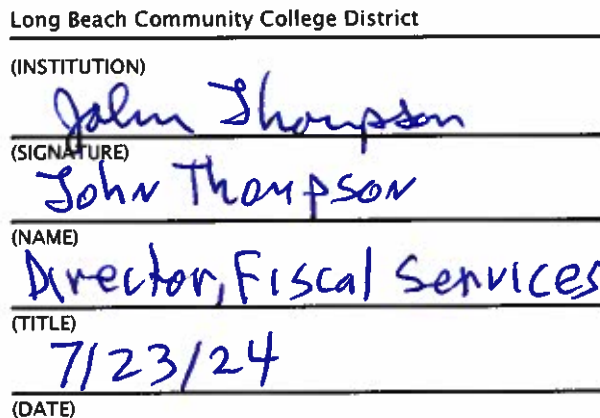 Long Beach Community College District
(INSTITUTION)
John Thompson
(SIGNATURE)
John Thompson
(NAME)
Director, Fiscal Services
(TITLE)
7/23/24
(DATE)